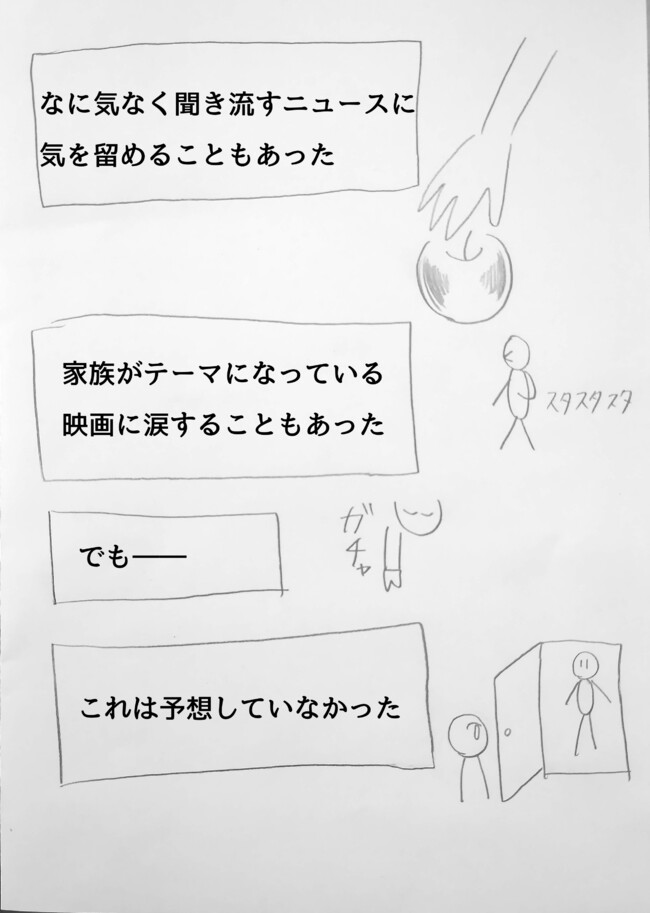 なに気なく聞き流すニュースに
気を留めることもあった
家族がテーマになっている
映画に涙することもあった
スタスタスタ
でも――
ガチャ
これは予想していなかった